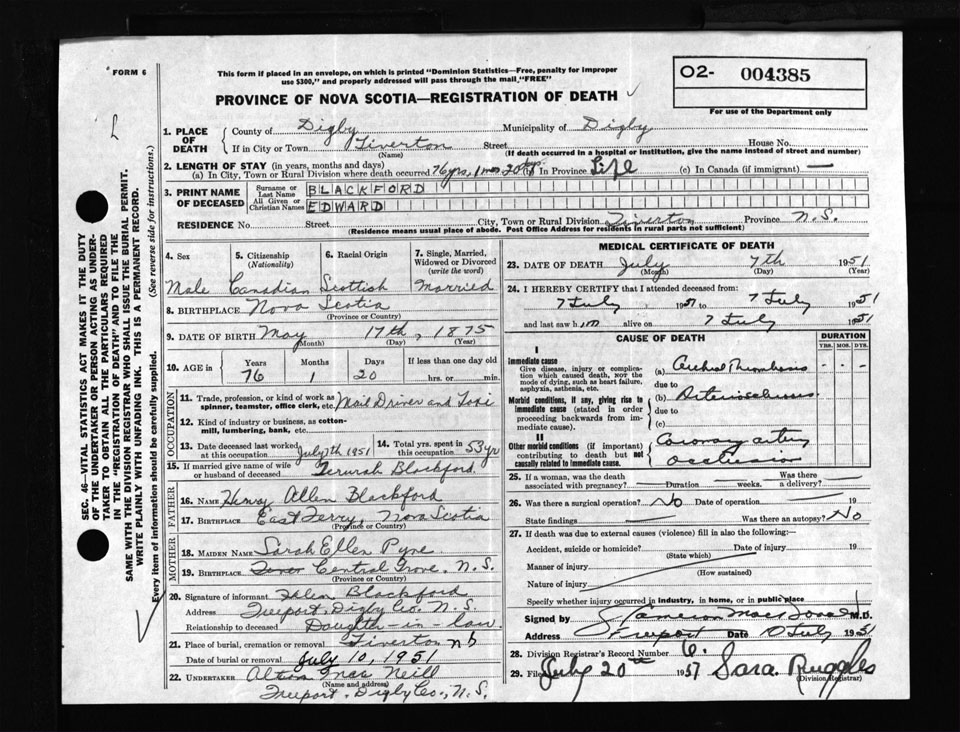 FORM 6
This form if placed in an envelope, on which is printed "Dominion Statistics—Free, penalty for improper
use $300," and properly addressed will pass through the mail, "FREE"
O2- 004385
For use of the Department only
PROVINCE OF NOVA SCOTIA—REGISTRATION OF DEATH
SEC. 46—VITAL STATISTICS ACT MAKES IT THE DUTY
OF THE UNDERTAKER OR PERSON ACTING AS UNDER-
TAKER TO OBTAIN ALL THE PARTICULARS REQUIRED
IN THE "REGISTRATION OF DEATH" AND TO FILE THE
SAME WITH THE DIVISION REGISTRAR WHO SHALL ISSUE THE BURIAL PERMIT.
WRITE PLAINLY WITH UNFADING INK. THIS IS A PERMANENT RECORD.
Every item of information should be carefully supplied. (See reverse side for instructions.)
1. PLACE OF DEATH
County of Digby Municipality of Digby
If in City or Town Tiverton Street House No.
(Name) (If death occurred in a hospital or institution, give the name instead of street and number)
2. LENGTH OF STAY (in years, months and days)
(a) In City, Town or Rural Division where death occurred 76 yrs, 1 mos 20 dys (b) In Province Life (c) In Canada (if immigrant) —
3. PRINT NAME OF DECEASED
Surname or Last Name BLACKFORD
All Given or Christian Names EDWARD
RESIDENCE No. Street City, Town or Rural Division Tiverton Province N.S.
(Residence means usual place of abode. Post Office Address for residents in rural parts not sufficient)
4. Sex 5. Citizenship (Nationality) 6. Racial Origin 7. Single, Married, Widowed or Divorced (write the word)
Male Canadian Scottish Married
8. BIRTHPLACE Nova Scotia
(Province or Country)
9. DATE OF BIRTH May 17th, 1875
(Month) (Day) (Year)
10. AGE in Years Months Days If less than one day old
76 1 20 hrs. or min.
OCCUPATION
11. Trade, profession, or kind of work as
spinner, teamster, office clerk, etc. Mail Driver and Taxi
12. Kind of industry or business, as cotton-
mill, lumbering, bank, etc.
13. Date deceased last worked at this occupation July 7th 1951 14. Total yrs. spent in this occupation 53 yr
15. If married give name of wife
or husband of deceased Blackford
FATHER
16. Name Henry Allen Blackford
17. BIRTHPLACE East Ferry, Nova Scotia
(Province or Country)
MOTHER
18. MAIDEN NAME Sarah Ellen Pyne
19. BIRTHPLACE Central Grove, N.S.
(Province or Country)
20. Signature of informant Helen Blackford
Address Freeport, Digby Co. N.S.
Relationship to deceased Daughth-in-law
21. Place of burial, cremation or removal Tiverton
Date of burial or removal July 10, 1951
22. UNDERTAKER Neill
(Name and address)
Freeport, Digby Co., N.S.
MEDICAL CERTIFICATE OF DEATH
23. DATE OF DEATH July 7th 1951
(Month) (Day) (Year)
24. I HEREBY CERTIFY that I attended deceased from:
7 July 1951 to 7 July 1951
and last saw him alive on 7 July 1951
CAUSE OF DEATH DURATION
YRS. MOS. DYS.
I
Immediate cause
Give disease, injury or complica-
tion which caused death, not the
mode of dying, such as heart failure,
asphyxia, asthenia, etc.
(a) Thrombosis - - -
due to
Morbid conditions, if any, giving rise to
immediate cause (stated in order
proceeding backwards from im-
mediate cause).
(b) Arteriosclerosis
due to
(c)
II
Other morbid conditions (if important)
contributing to death but not
causally related to immediate cause.
Coronary artery
occlusion
25. If a woman, was the death Was there
associated with pregnancy? Duration weeks. a delivery?
26. Was there a surgical operation? No Date of operation 19
State findings Was there an autopsy? No
27. If death was due to external causes (violence) fill in also the following:
Accident, suicide or homicide? Date of injury 19
(State which)
Manner of injury
(How sustained)
Nature of injury
Specify whether injury occurred in industry, in home, or in public place
Signed by Cameron MacDonald M.D.
Address Freeport Date 10 July 1951
28. Division Registrar's Record Number 6.
29. Filed July 20th 1951 Sara Ruggles
(Division Registrar)